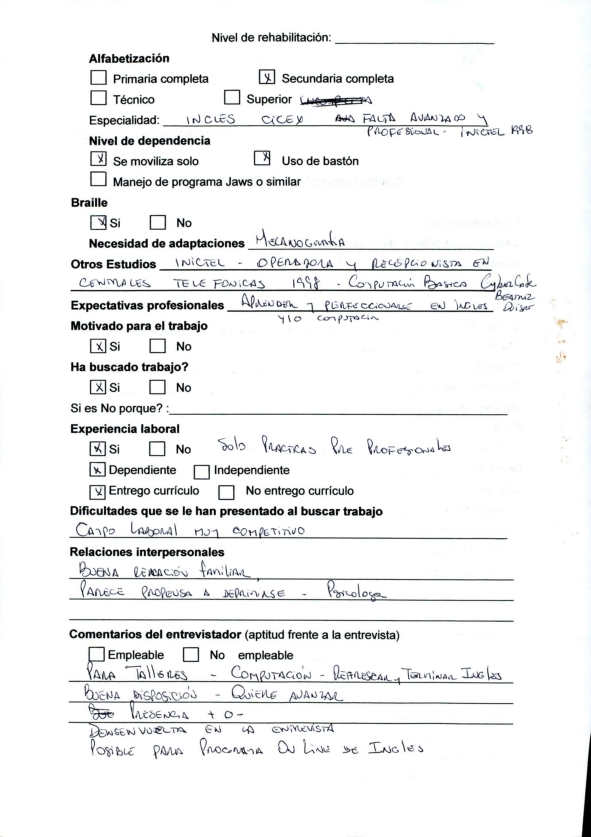 Nivel de rehabilitación:
Alfabetización
Primaria completa [x] Secundaria completa
Técnico Superior
Especialidad: INGLES CICEX FALTA AVANZADO Y
PROFESIONAL - INICTEL 1998
Nivel de dependencia
[x] Se moviliza solo [x] Uso de bastón
Manejo de programa Jaws o similar
Braille
[x] Si No
Necesidad de adaptaciones MECANOGRAFIA
Otros Estudios INICTEL - OPERADORA Y RECEPCIONISTA EN
CENTRALES TELEFONICAS 1998 - COMPUTACIÓN BASICA
BEATRIZ
Expectativas profesionales APRENDER Y PERFECCIONARSE EN INGLES
Y/O COMPUTACIÓN
Motivado para el trabajo
[x] Si No
Ha buscado trabajo?
[x] Si No
Si es No porque? :
Experiencia laboral
[x] Si No Solo PRACTICAS PRE PROFESIONALES
[x] Dependiente Independiente
[x] Entrego currículo No entrego currículo
Dificultades que se le han presentado al buscar trabajo
CAMPO LABORAL MUY COMPETITIVO
Relaciones interpersonales
BUENA RELACIÓN familiar,
PARECE PROPENSA A DEPRIMIRSE - Psicologa
Comentarios del entrevistador (aptitud frente a la entrevista)
Empleable No empleable
PARA TALLERES - COMPUTACIÓN - REFRESCAR y TERMINAR INGLES
BUENA DISPOSICIÓN - QUIERE AVANZAR
PRESENCIA + O -
DENSENVUELTA EN LA ENTREVISTA
POSIBLE PARA PROGRAMA ON LINE DE INGLES